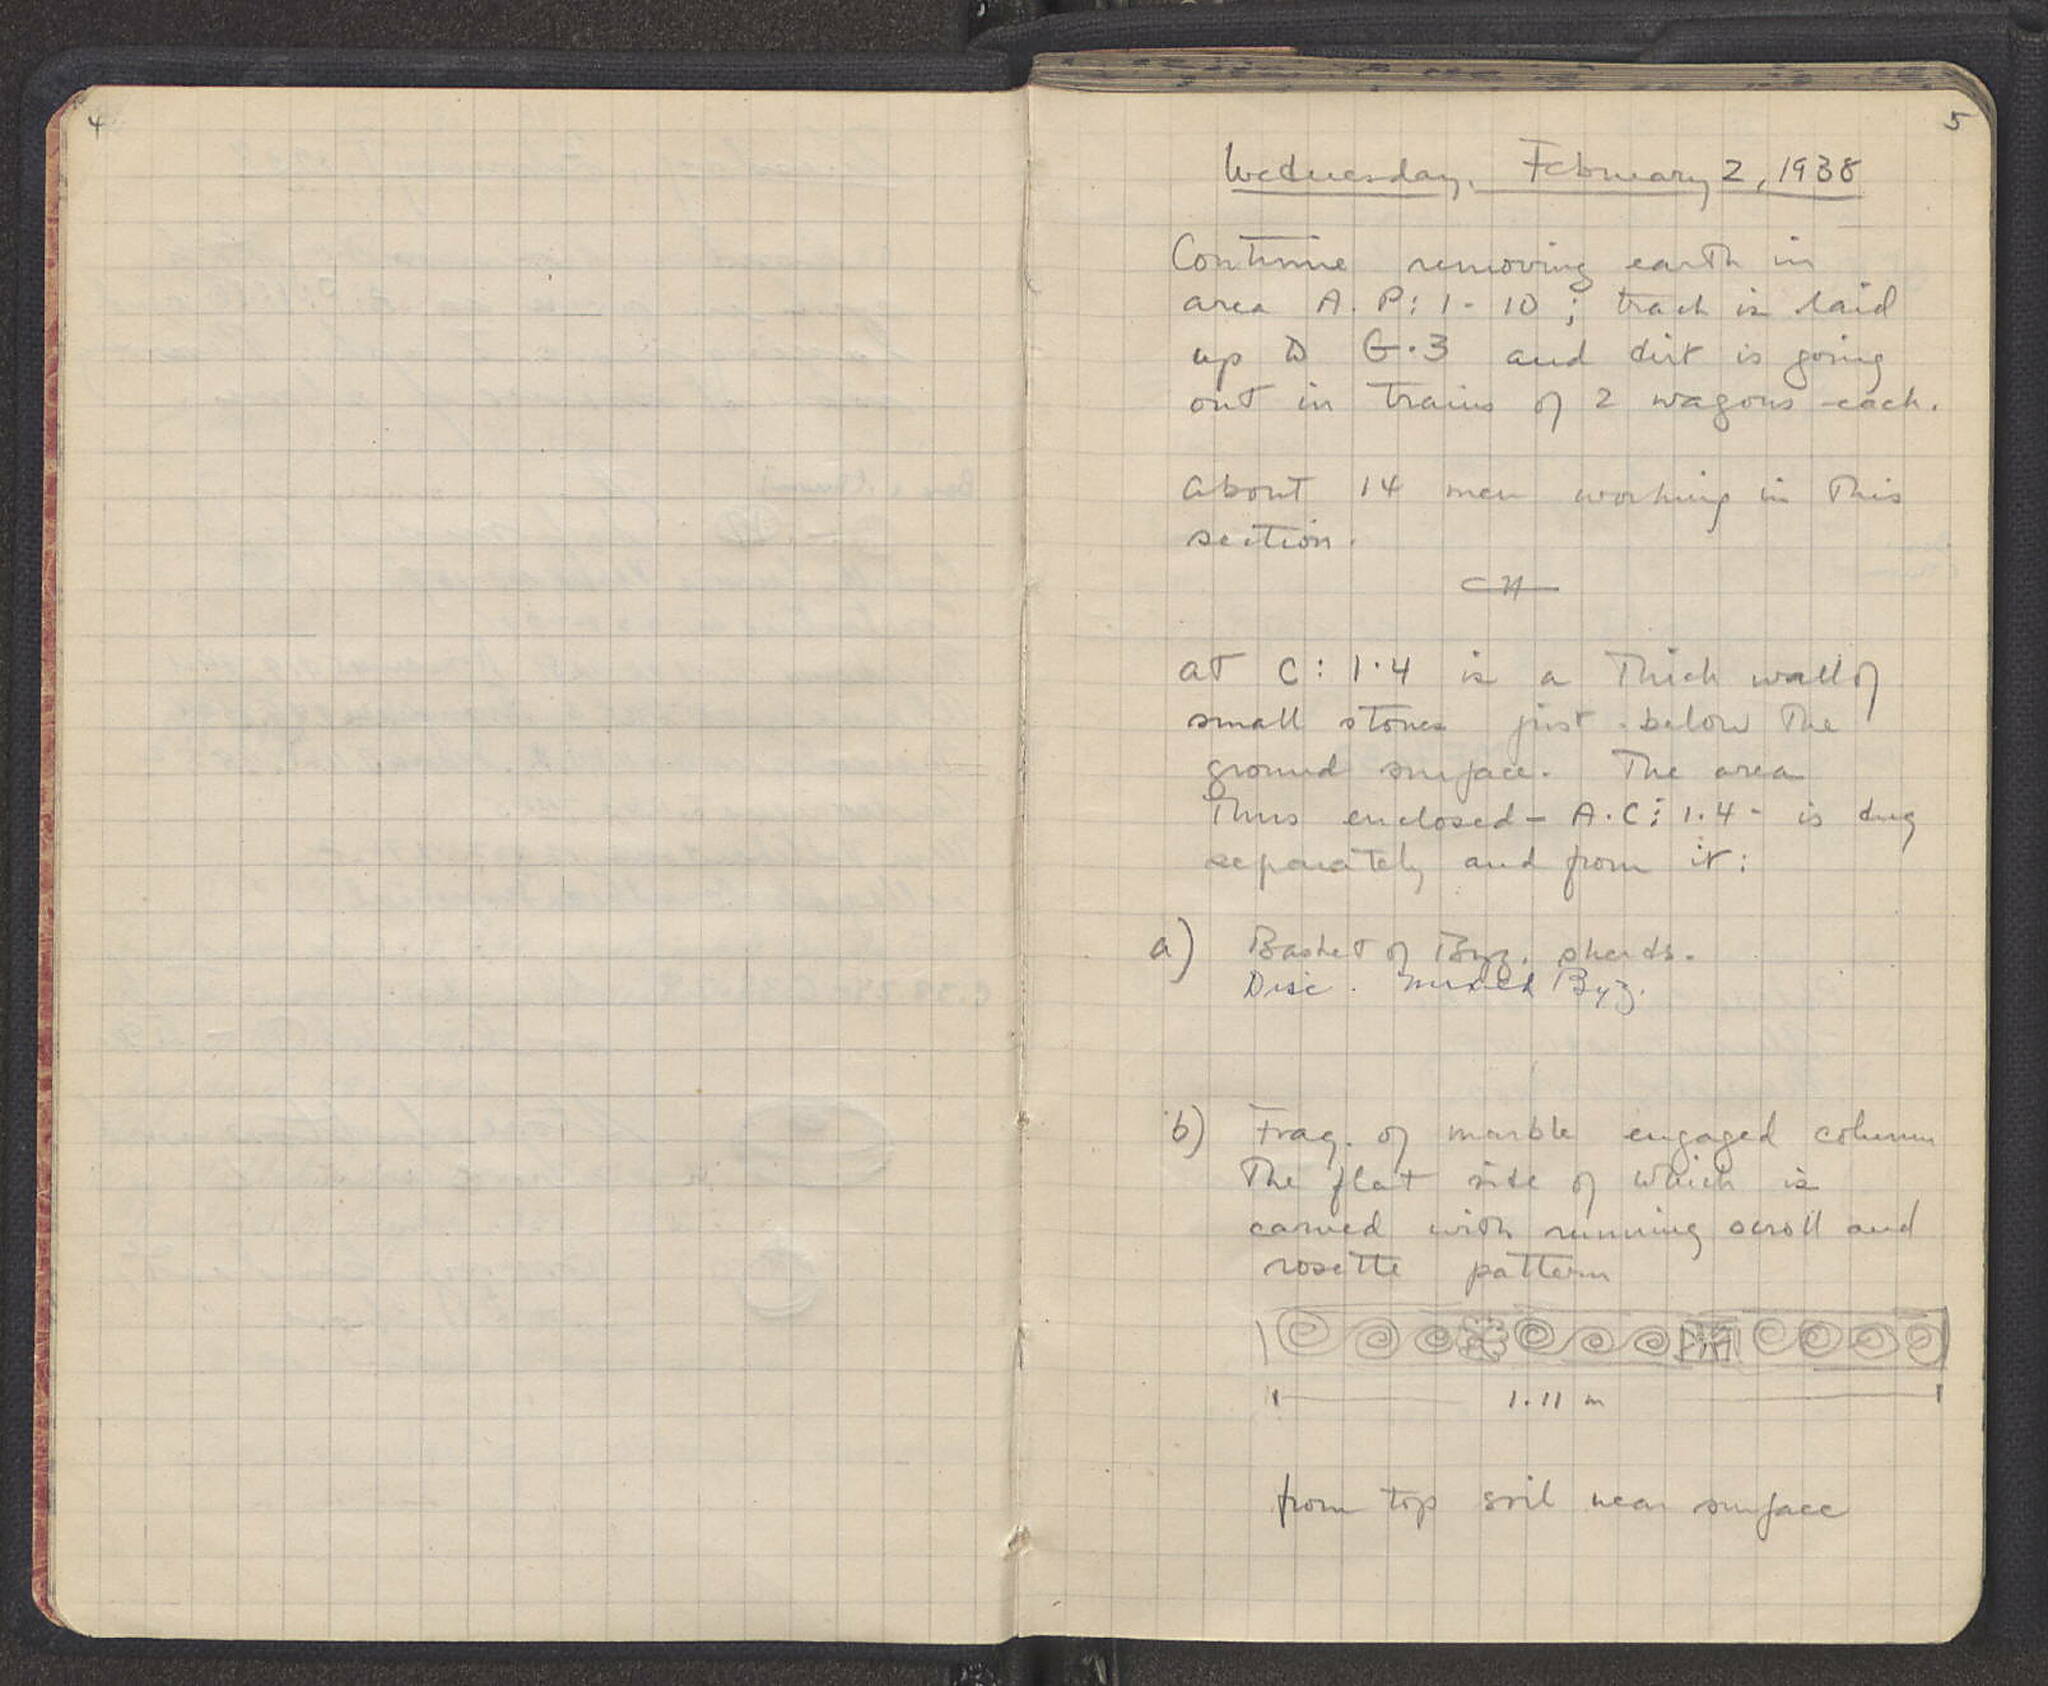 4
5
Wednesday, February 2, 1938
Continue removing earth in
area A.P:1-10; track is laid
up to G.3 and dirt is going
out in trains of 2 wagons each.
About 14 men working in this
section.
At C:1.4 is a thick wall of
small stones just below the
ground surface. The area
thus enclosed - A.C:1.4 - is dug
separately and from it:
a) Basket of Byz. sherds.
Disc. mixed Byz.
b) Frag. of marble engaged column
the flat side of which is
carved with running scroll and
rosette pattern
1.11 m
from top soil near surface